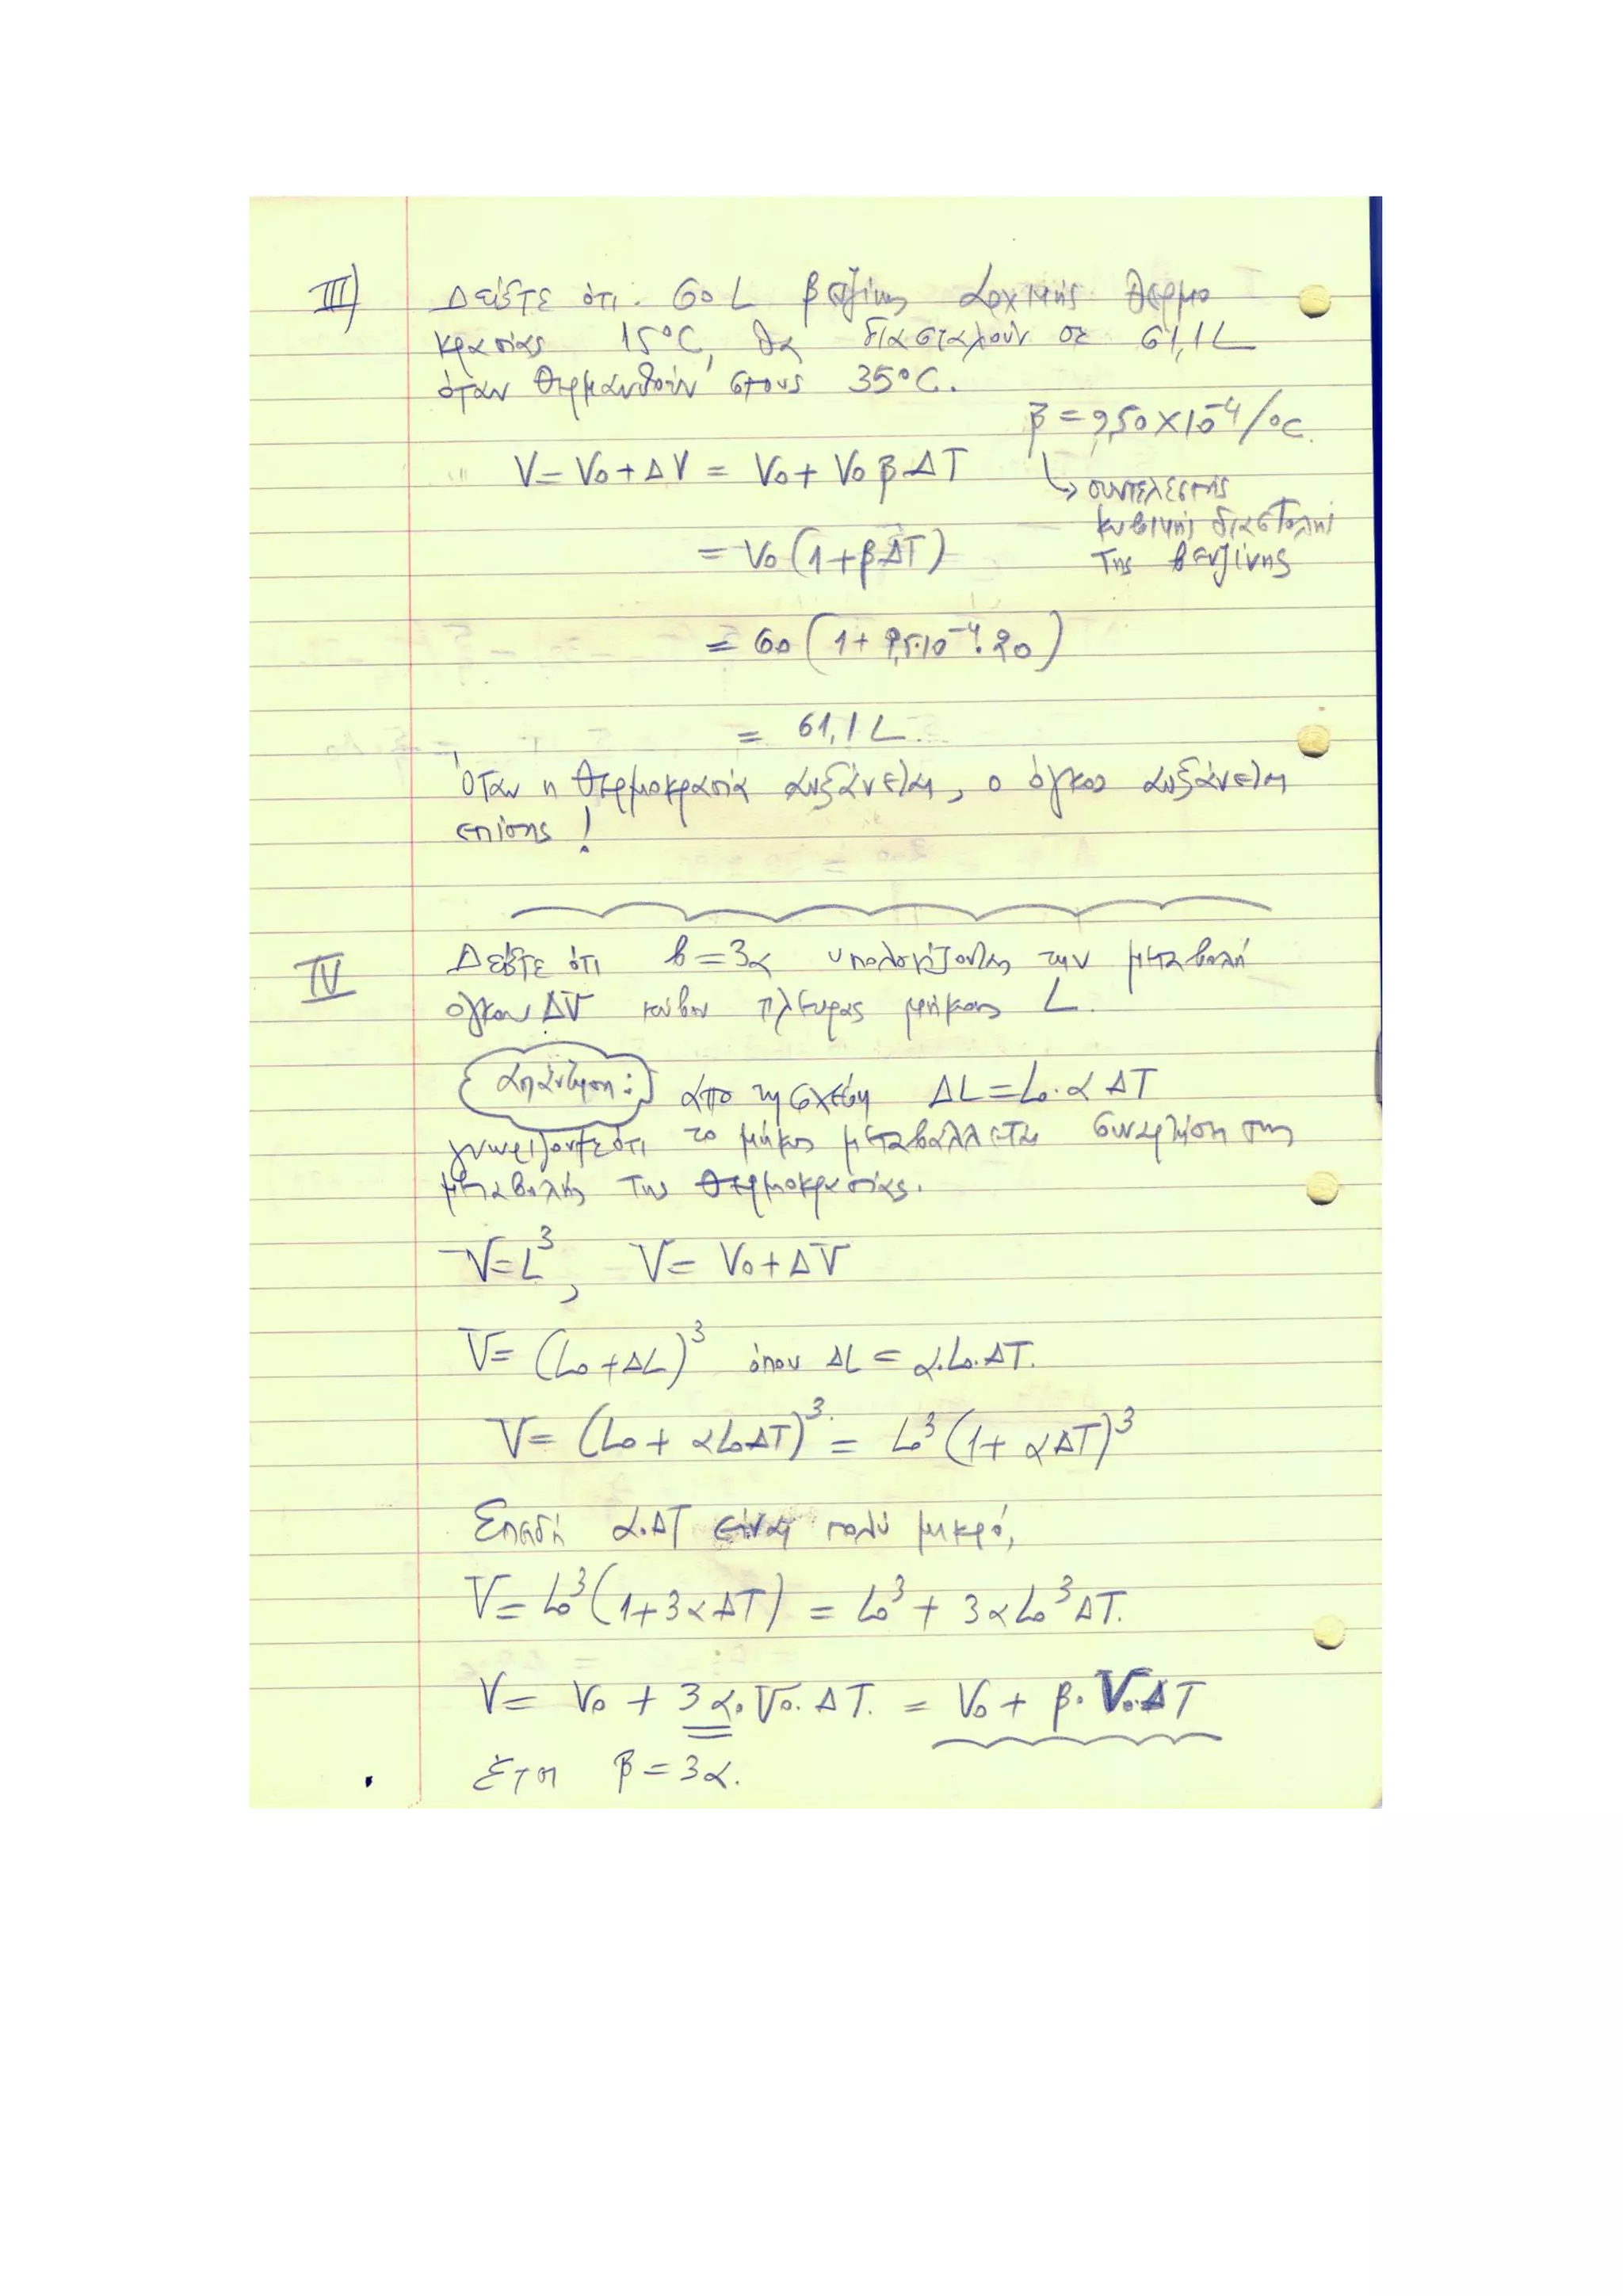 III) Δείξτε ότι. 60 L βενζίνης αρχικής θερμο
κρασίας 15°C, θα διασταλούν σε 61,1L
όταν θερμανθούν στους 35°C.
β = 9,50×10⁻⁴/°C.
V = V₀ + ΔV = V₀ + V₀ β ΔT
↳ συντελεστής
κυβικής διαστολής
της βενζίνης
= V₀ (1+βΔT)
= 60 (1 + 9,5·10⁻⁴·20)
= 61,1 L.
Όταν η θερμοκρασία αυξάνεται, ο όγκος αυξάνεται
επίσης!
IV Δείξτε ότι β=3α υπολογίζοντας την μεταβολή
όγκου ΔV κύβου πλευράς μήκους L.
Απάντηση: από τη σχέση ΔL = L₀·α ΔT
γνωρίζουμε ότι το μήκος μεταβάλλεται συναρτήσει της
μεταβολής της θερμοκρασίας.
V=L³, V = V₀+ΔV
V = (L₀+ΔL)³ όπου ΔL = α.L₀.ΔT.
V = (L₀ + αL₀ΔT)³ = L₀³ (1+ αΔT)³
Επειδή α.ΔT είναι πολύ μικρό,
V = L₀³ (1+3αΔT) = L₀³ + 3αL₀³ΔT.
V = V₀ + 3α.V₀.ΔT. = V₀ + β.V₀.ΔT
Έτσι β = 3α.